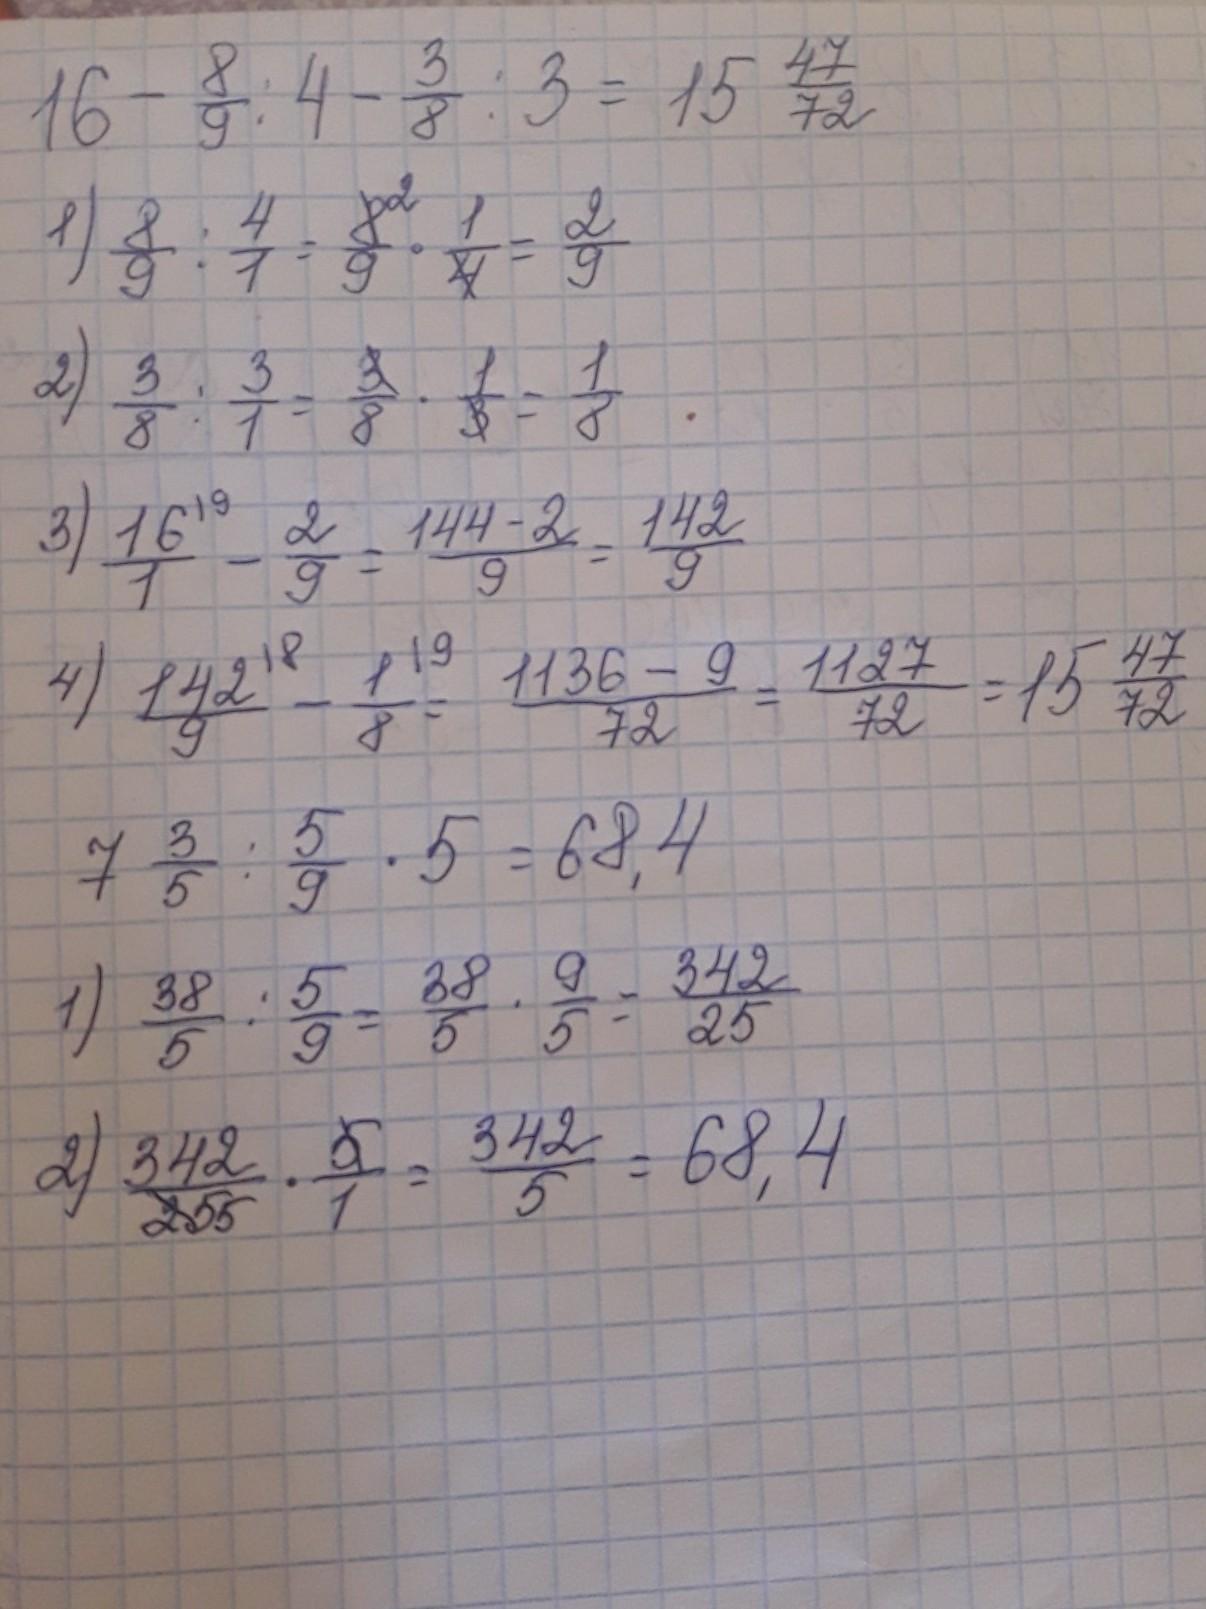 16 - 8/9 : 4 - 3/8 : 3 = 15 47/72
1) 8/9 : 4/1 = 8²/9 · 1/4 = 2/9
2) 3/8 : 3/1 = 3/8 · 1/3 = 1/8
3) 16^19/1 - 2/9 = 144-2/9 = 142/9
4) 142^18/9 - 1^19/8 = 1136 - 9/72 = 1127/72 = 15 47/72
7 3/5 : 5/9 · 5 = 68,4
1) 38/5 : 5/9 = 38/5 · 9/5 = 342/25
2) 342/255 · 5/1 = 342/5 = 68,4